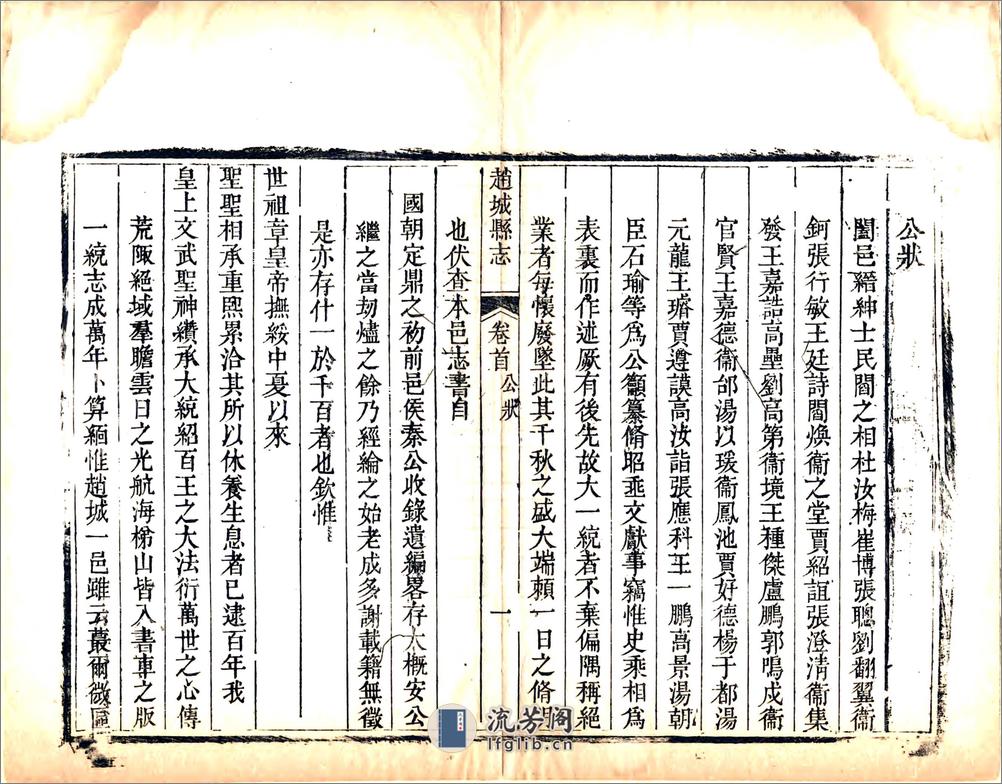 公狀
闔邑縉紳士民閻之相杜汝梅崔博張聰劉翻翼衞
鈳張行敏王廷詩閻煥衞之堂賈紹誼張澄清衞集
發王嘉誥高壘劉高第衞境王種傑盧鵬郭鳴成衞
官賢王嘉德衞邰湯以瑗衞鳳池賈好德楊于都湯
元龍王璿賈遵謨高汝詣張應科王一鵬高景湯朝
臣石瑜等爲公籲纂脩昭垂文獻事竊惟史乘相爲
表裏而作述厥有後先故大一統者不棄偏隅稱絕
業者每懷廢墜此其千秋之盛大端賴一日之脩
趙城縣志
卷首
公狀
一
也伏查本邑志書自
國朝定鼎之初前邑侯秦公收錄遺編畧存大概安公
繼之當刼燼之餘乃經綸之始老成多謝載籍無徵
是亦存什一於千百者也欽惟
世祖章皇帝撫綏中夏以來
聖聖相承重熙累洽其所以休養生息者已逮百年我
皇上文武聖神纘承大統紹百王之大法衍萬世之心傳
荒陬絕域羣瞻雲日之光航海梯山皆入書車之版
一統志成萬年卜算緬惟趙城一邑雖云蕞爾微區
流芳閣
lfglib.cn